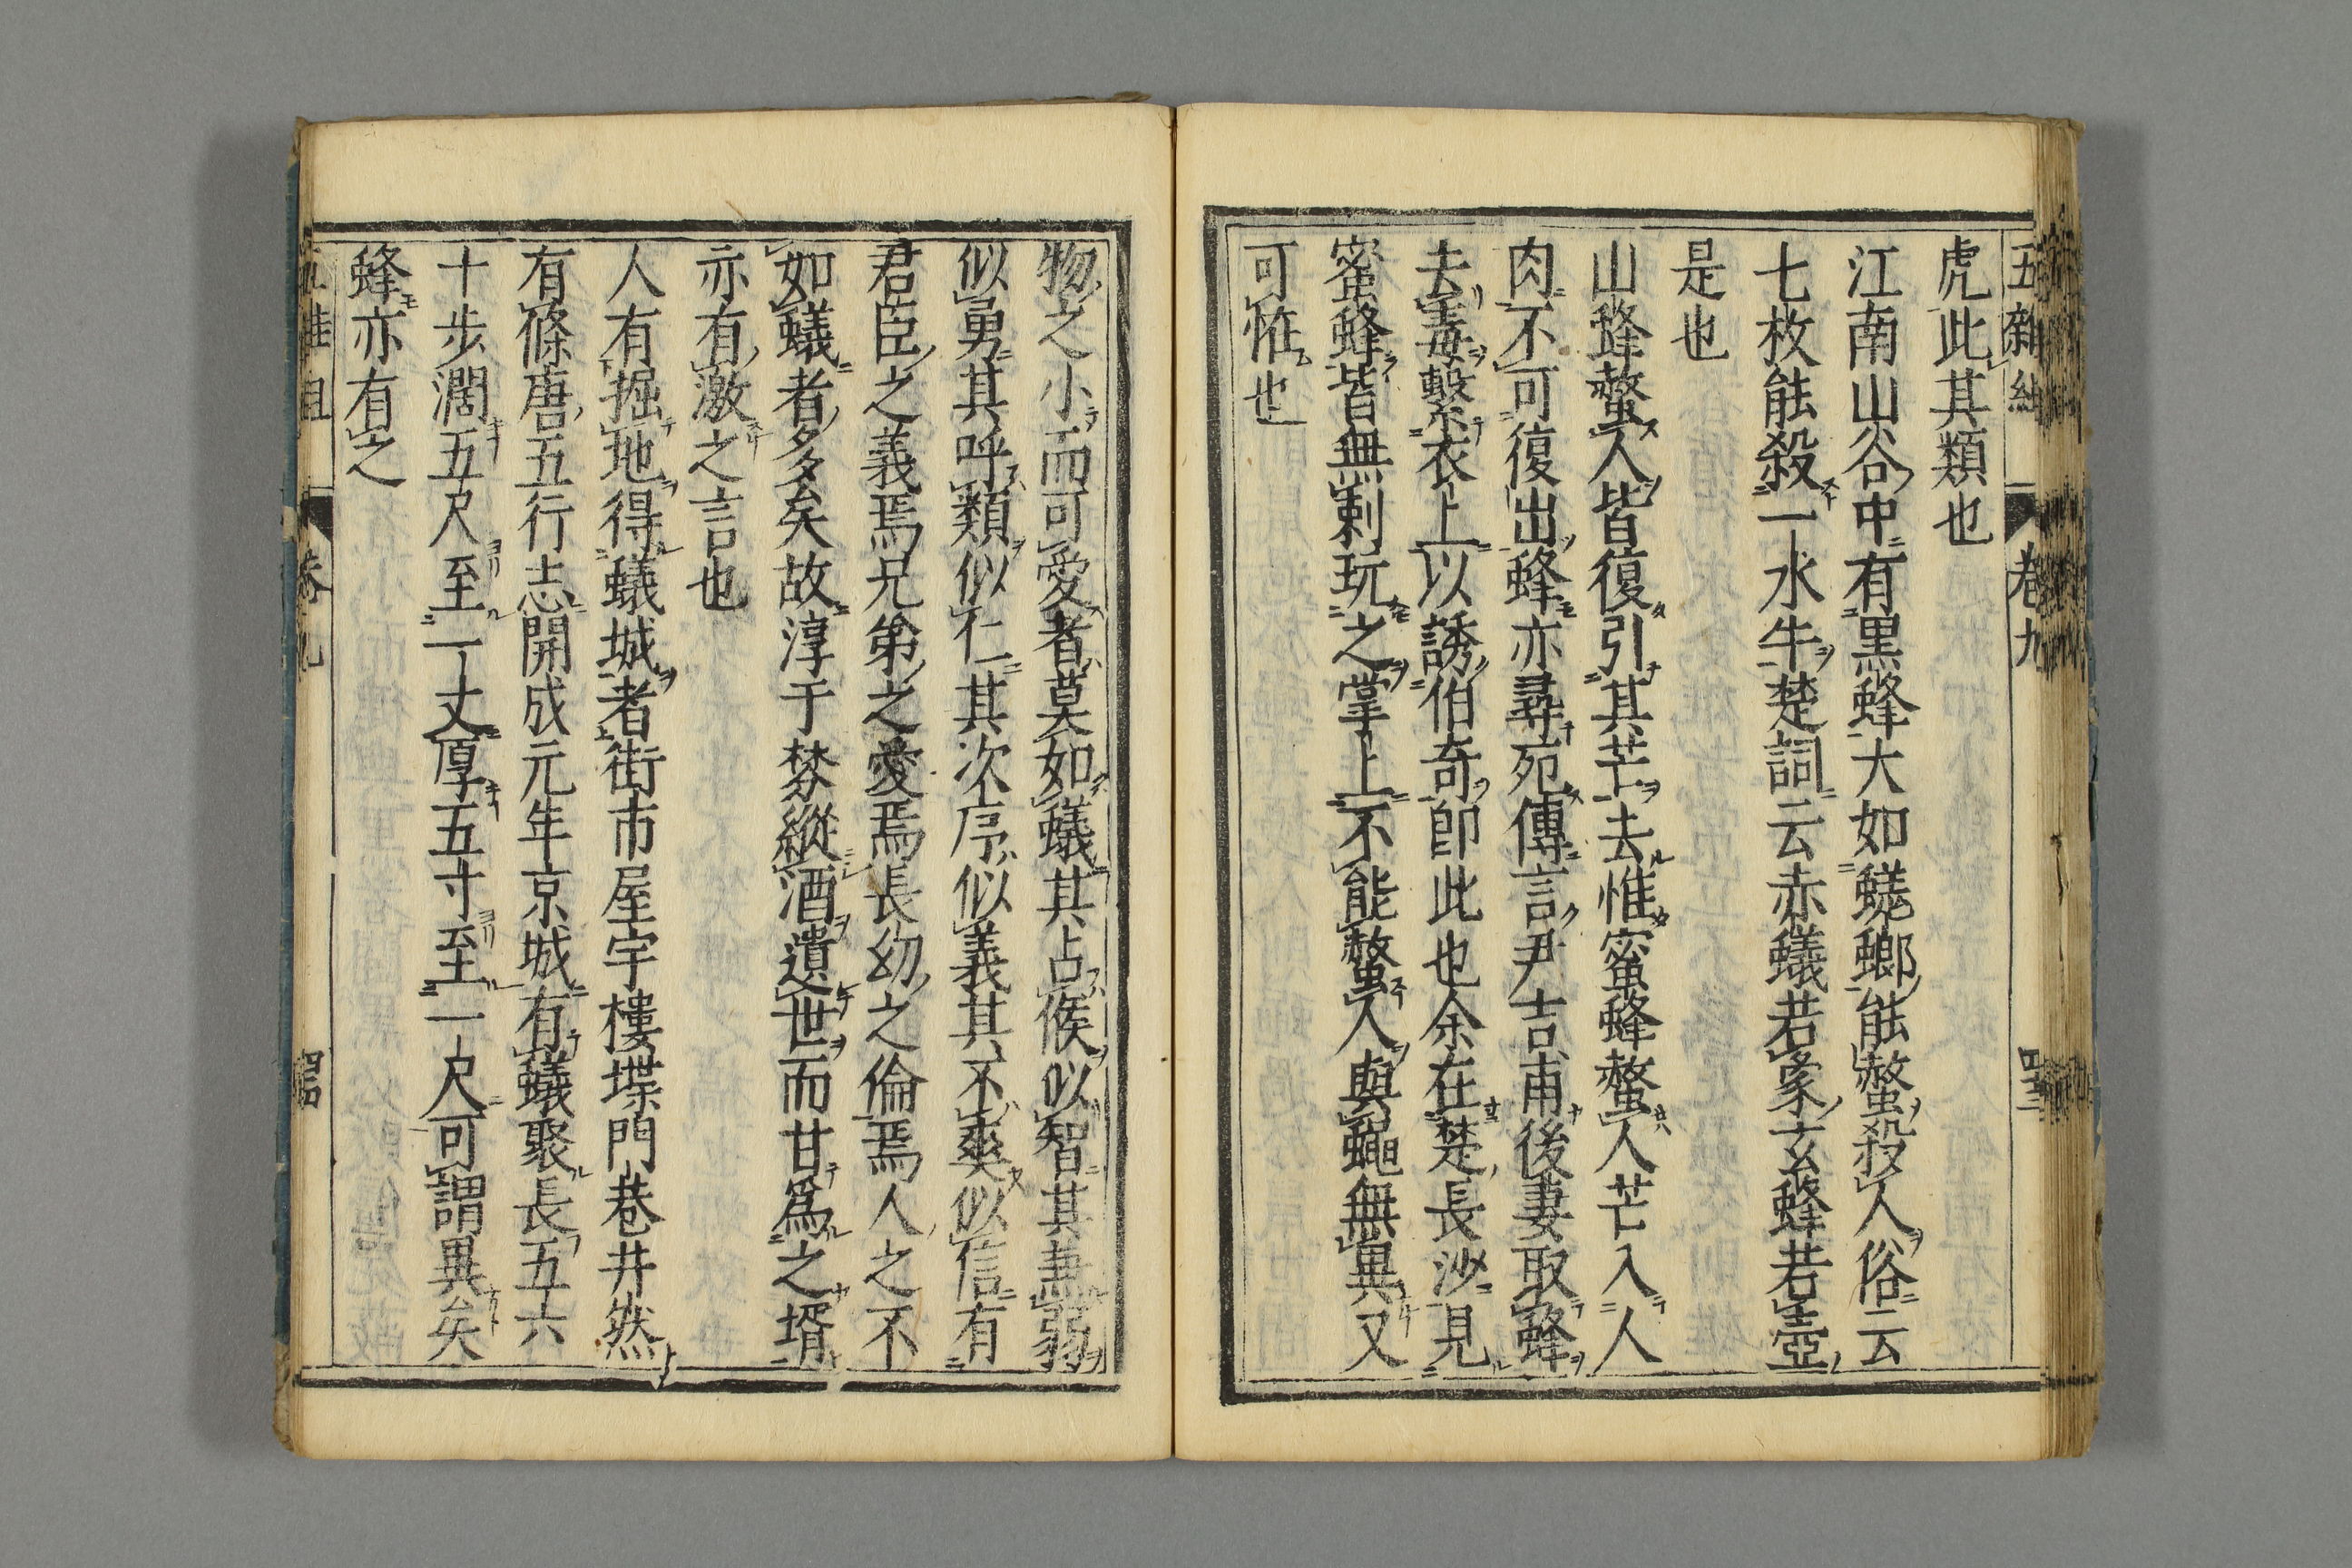 五雜組 卷九
虎此其類也
江南山谷中有黒蜂大如蜣螂能螫殺人俗云
七枚能殺一水牛楚詞云赤蟻若象玄蜂若壺
是也
山蜂螫人皆復引其芒去惟蜜蜂螫人芒入人
肉不可復出蜂亦尋死傳言尹吉甫後妻取蜂
去毒繫衣上以誘伯奇即此也余在楚長沙見
蜜蜂皆無刺玩之掌上不能螫人與蠅無異又
可恠也
物之小而可愛者莫如蟻其占候似智其兼弱
似勇其呼類似仁其次序似義其不爽似信有
君臣之義焉兄弟之愛焉長幼之倫焉人之不
如蟻者多矣故淳于棼縱酒遺世而甘爲之壻
亦有激之言也
人有掘地得蟻城者街市屋宇樓堞門巷井然
有條唐五行志開成元年京城有蟻聚長五六
十步濶五尺至一丈厚五寸至一尺可謂異矣
蜂亦有之